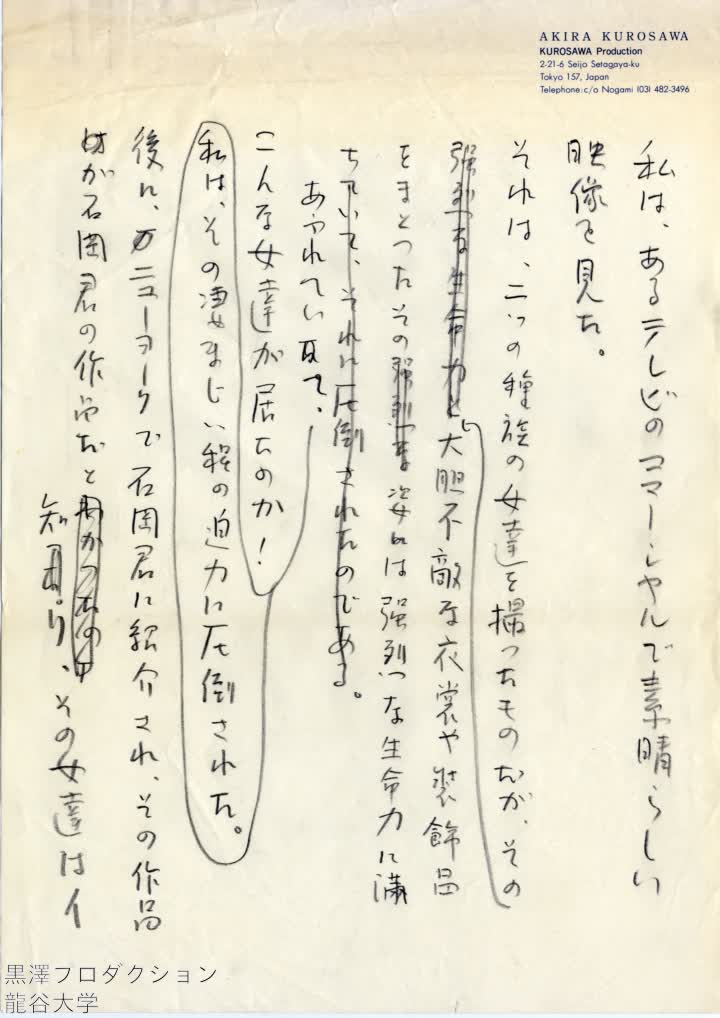 AKIRA KUROSAWA
KUROSAWA Production
2-21-6 Seijo Setagaya-ku
Tokyo 157, Japan
Telephone: c/o Nogami (03) 482-3496
私は、あるテレビのコマーシャルで素晴らしい
映像を見た。
それは、二つの種族の女達を撮ったものだが、その
強烈な生命力と、大胆不敵な衣裳や装飾品
をまとったその強烈な姿には強烈な生命力に満
ちていて、それに圧倒されたのである。
あふれていて、
こんな女達が居たのか!
私は、その凄まじい程の迫力に圧倒された。
後に、ニューヨークで石岡君に紹介され、その作品
が石岡君の作品だと
知り、その女達はイ
黒澤プロダクション
龍谷大学